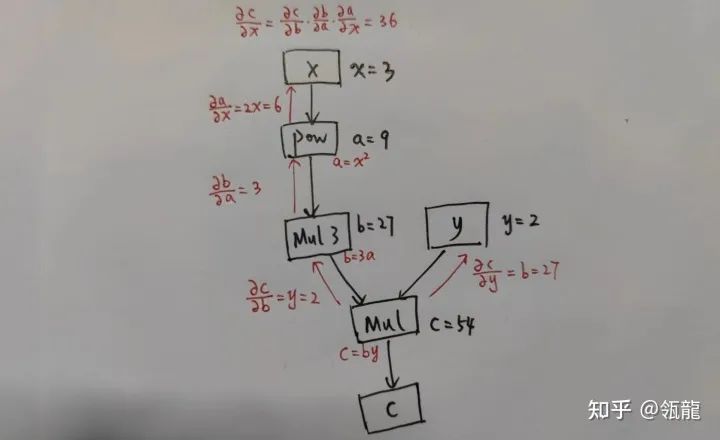 ∂c/∂x = ∂c/∂b · ∂b/∂a · ∂a/∂x = 36
x x=3
∂a/∂x = 2x = 6
pow a=9
a=x²
∂b/∂a = 3
Mul 3 b=27
b=3a
y y=2
∂c/∂b = y = 2
∂c/∂y = b = 27
Mul c=54
c=by
c
知乎 @瓴龍